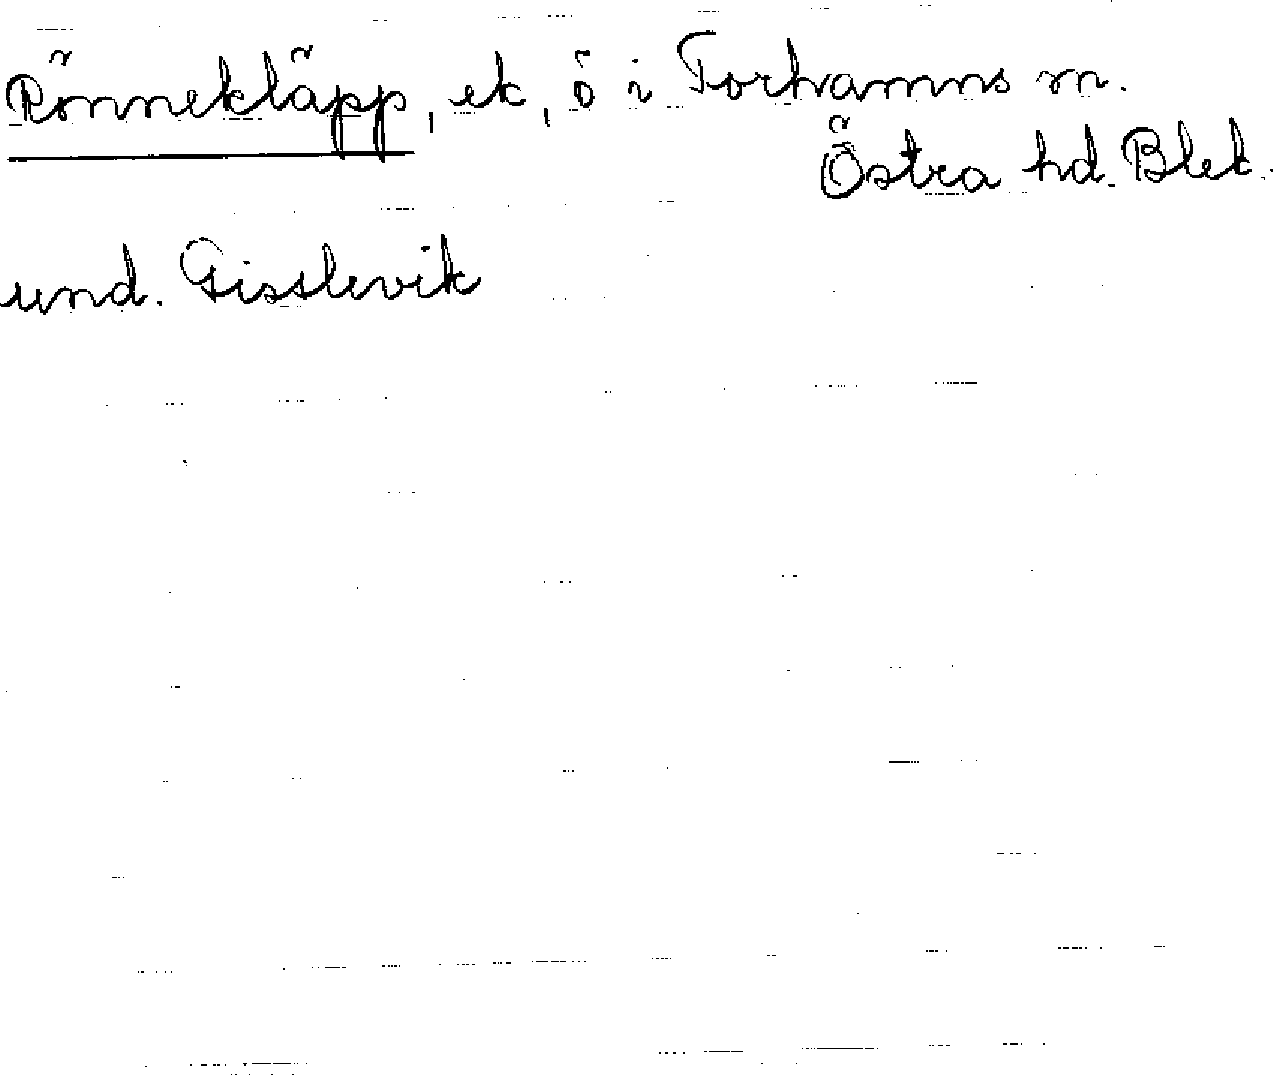 Rönnekläpp, ek, ö i Torhamns sn.
Östra hd. Blek.
und. Gisslevik